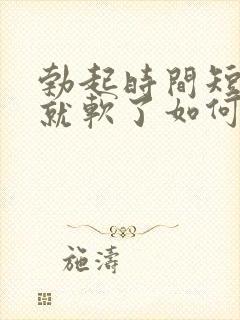 勃起時間短
就軟了如何
施濤